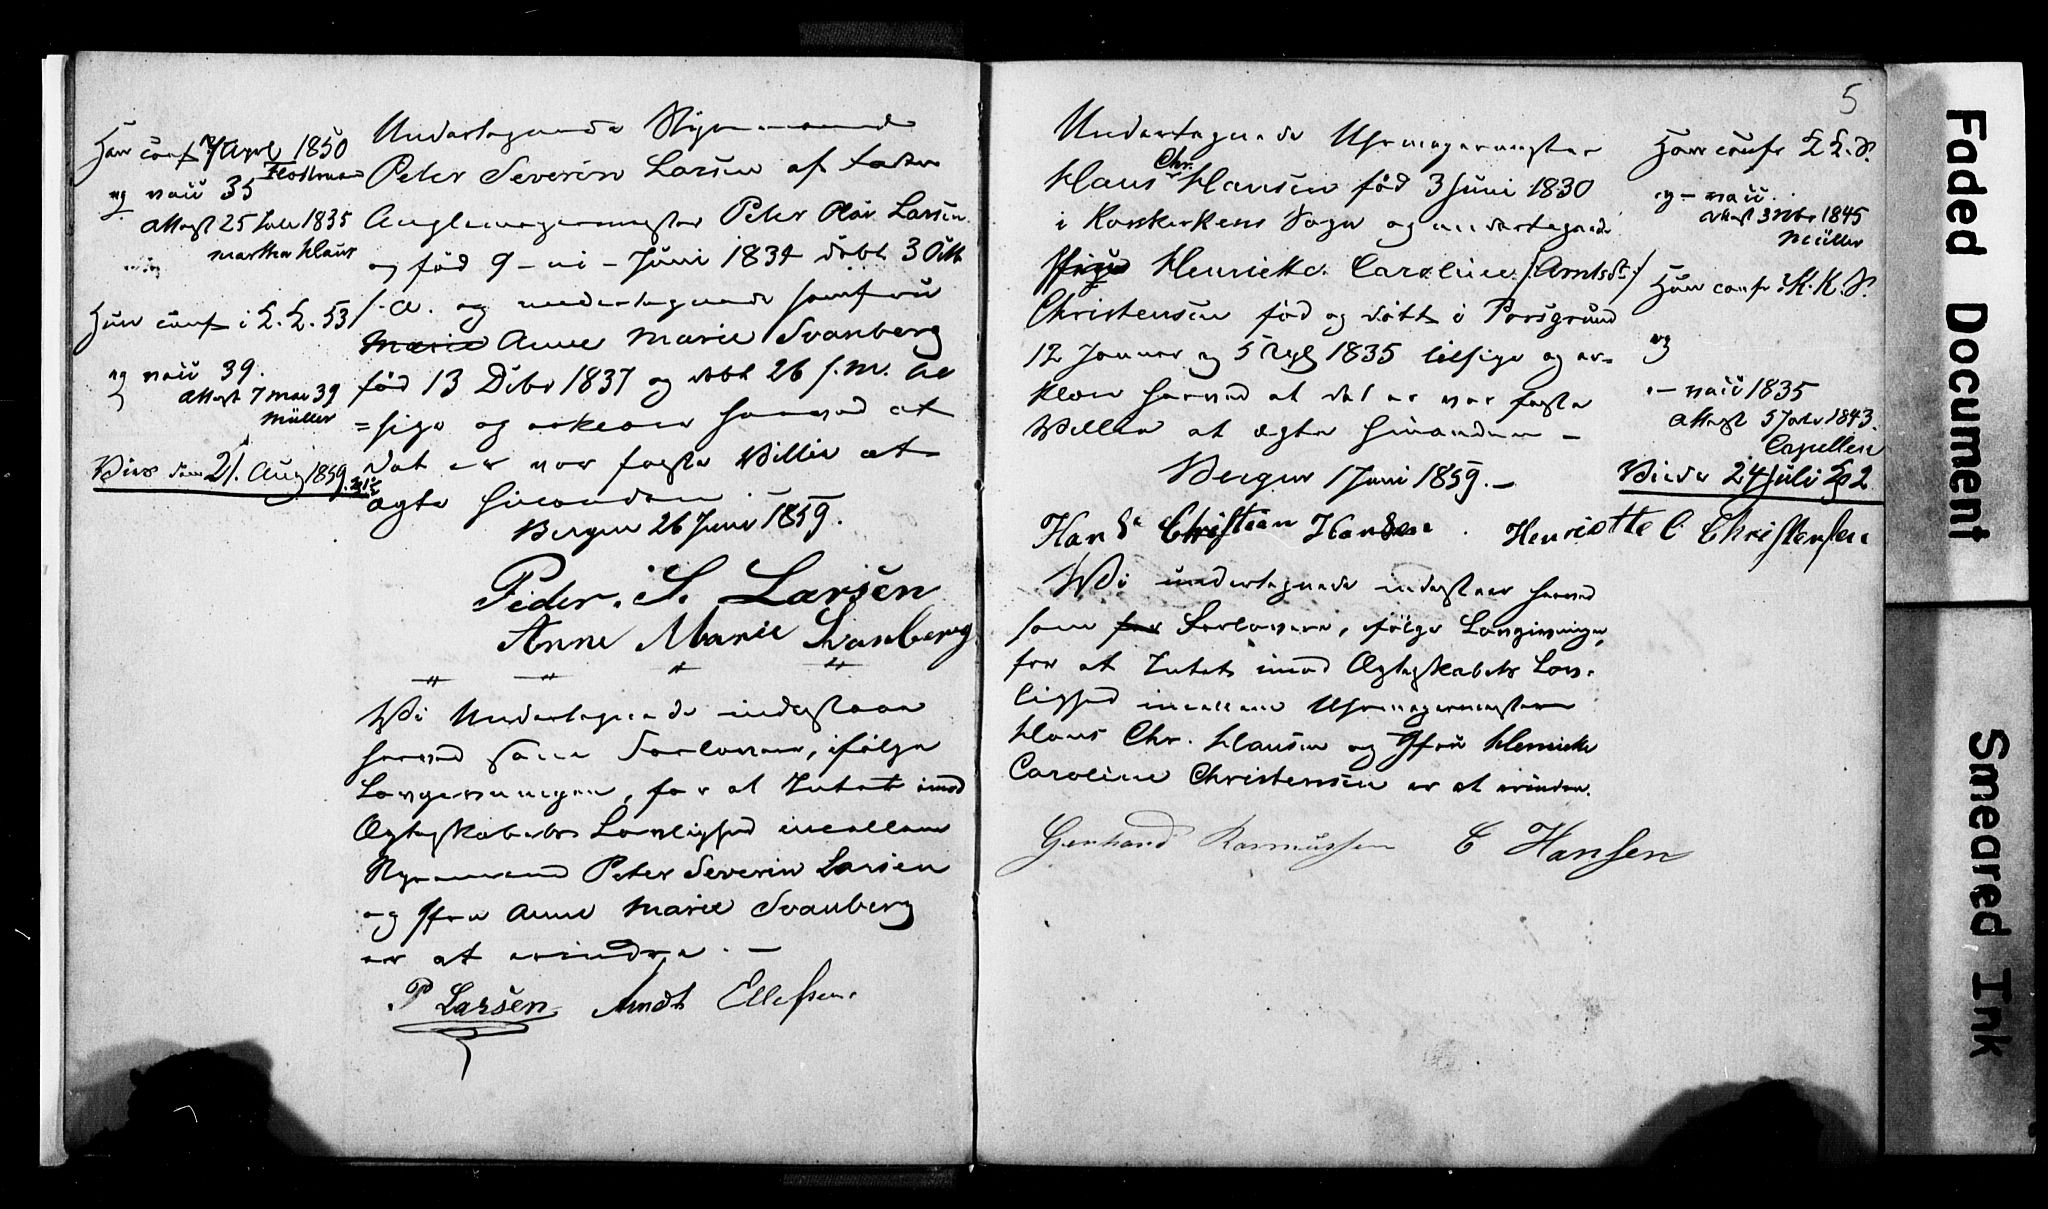 Han conf 7 April 1850
og vacc 35
Attest 25 Juli 1835
Martha Klaus
Hun conf i L. L. 53
og vacc 39.
Attest 7 Mai 39
Müller
Viet den 21. Aug 1859.
Undertegnede Styrmand
Peter Severin Larsen af Fader
Peter Olai Larsen
og fød 9 - ni - Juni 1834 døbt 3 Octb
s. A. og undertegnede Jomfru
Anne Marie Svanberg
fød 13 Dcbr 1837 og døbt 26 s. M. til
=sige og erklære herved at
det er vor faste Villie at
ægte hinanden
Bergen 26 Juni 1859.
Peder. S. Larsen
Anne Marie Svanberg
Vi Undertegnede indestaae
herved som Forlovere, ifølge
Lovgivningen, for at Intet imod
Ægteskabets Lovlighed imellem
Styrmand Peter Severin Larsen
og Jfru Anne Marie Svanberg
er at erindre. —
P Larsen Arndt Ellefsen.
5
Undertegnede Uhrmagermester
Hans Chr. Hansen fød 3 Juni 1830
i Korskirkens Sogn og undertegnede
Henriette Caroline /:Arntsdt:/
Christensen fød og døbt i Porsgrund
12 Januar og 5 1835 tilsige og er-
klære herved at det er vor faste
Villie at ægte hinanden —
Bergen 1 Juni 1859. —
Hans Christian Hansen. Henriette C Christensen
Vi undertegnede indestaae herved
som Forlovere, ifølge Lovgivningen,
for at Intet imod Ægteskabets Lov-
lighed imellem Uhrmagermester
Hans Chr. Hansen og Jfru Henriette
Caroline Christensen er at erindre.
Gerhard Rasmussen C Hansen
Han confr L L. S.
og - vacc.
Attest 3 Nvbr 1845
Müller
Hun confr K. K. S.
og
- vacc 1835
Attest 5 1843.
Capellen
Viede 24 Juli
Faded Document
Smeared Ink